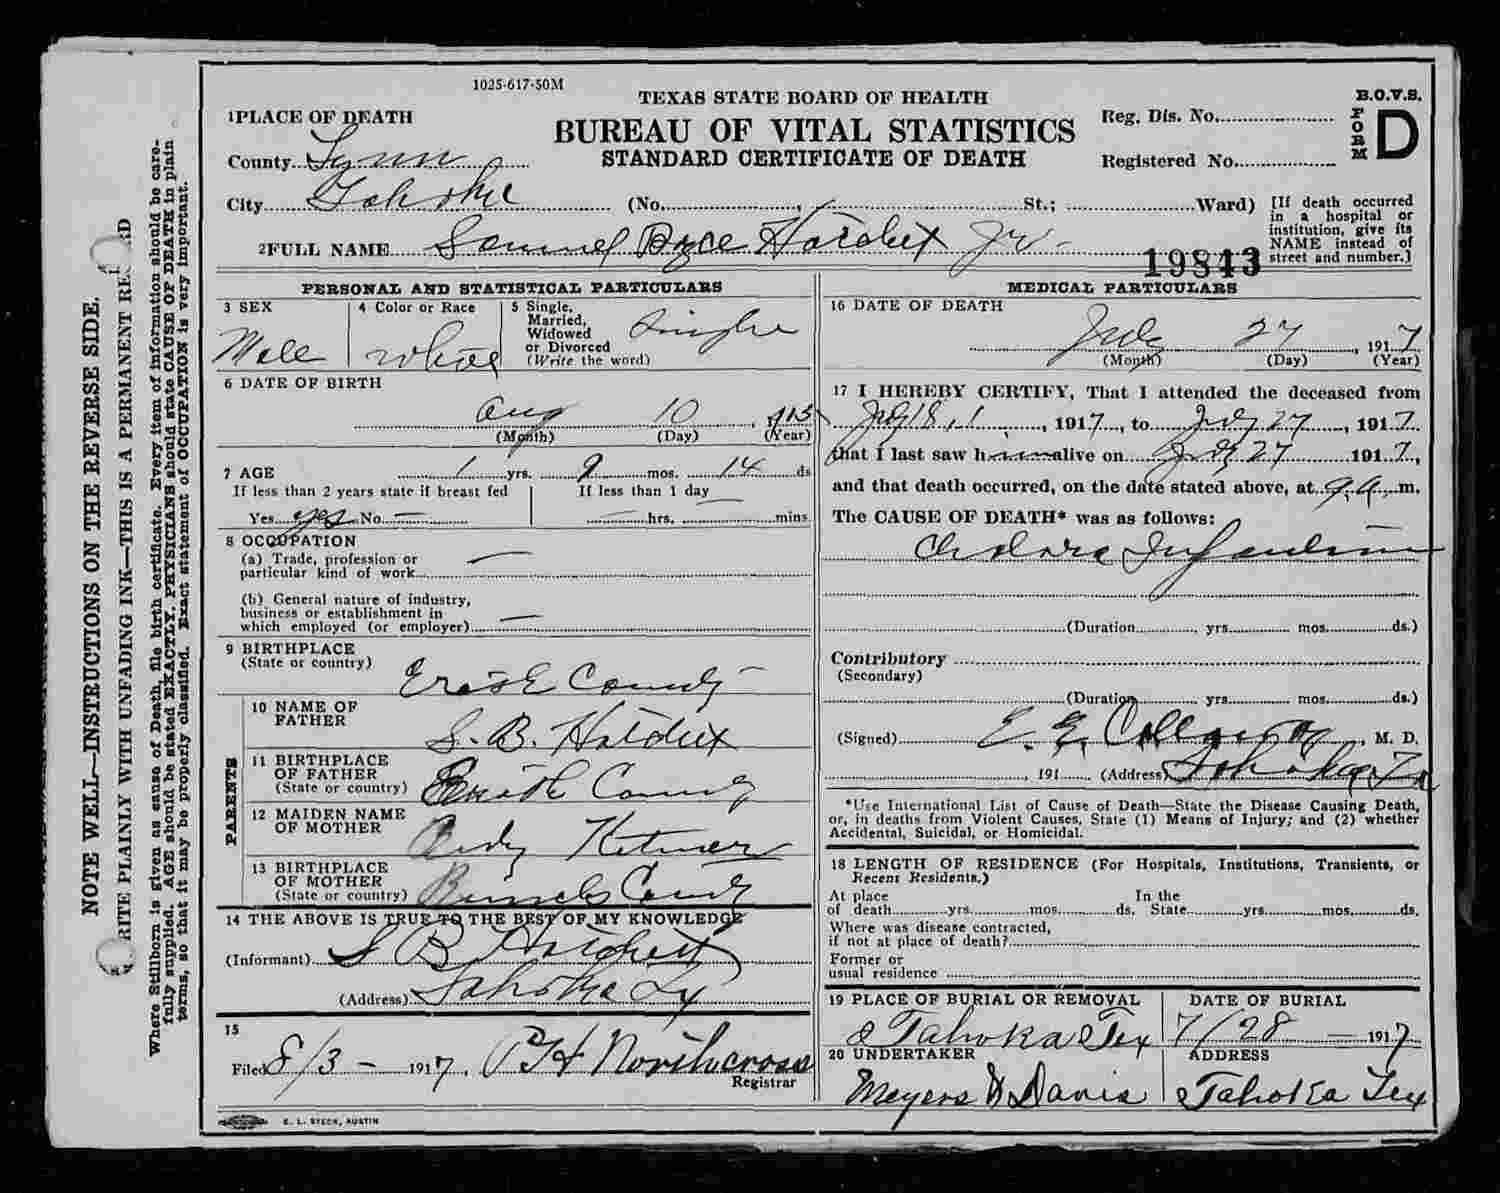 1025-617-50M
TEXAS STATE BOARD OF HEALTH
BUREAU OF VITAL STATISTICS
STANDARD CERTIFICATE OF DEATH
Reg. Dis. No.
Registered No.
B.O.V.S.
FORM D
1 PLACE OF DEATH
County Lynn
City Tahoka (No. , St.; Ward)
[If death occurred
in a hospital or
institution, give its
NAME instead of
street and number.]
2 FULL NAME Samuel Hatchett Jr.
19843
PERSONAL AND STATISTICAL PARTICULARS
3 SEX
Male
4 Color or Race
White
5 Single,
Married,
Widowed
or Divorced
(Write the word)
Single
6 DATE OF BIRTH
Aug 10
(Month) (Day) (Year)
7 AGE 1 yrs. 9 mos. 14 ds
If less than 2 years state if breast fed
Yes yes No —
If less than 1 day —
— hrs. mins
8 OCCUPATION
(a) Trade, profession or
particular kind of work —
(b) General nature of industry,
business or establishment in
which employed (or employer) —
9 BIRTHPLACE
(State or country)
County
PARENTS
10 NAME OF
FATHER
S. B. Hatchett
11 BIRTHPLACE
OF FATHER
(State or country)
Erath County
12 MAIDEN NAME
OF MOTHER
13 BIRTHPLACE
OF MOTHER
(State or country)
County
14 THE ABOVE IS TRUE TO THE BEST OF MY KNOWLEDGE
(Informant) S B Hatchett
(Address) Tahoka Tx
15
Filed 8/3 - 1917, P H Northcross
Registrar
E. L. STECK, AUSTIN
MEDICAL PARTICULARS
16 DATE OF DEATH
July 27, 1917
(Month) (Day) (Year)
17 I HEREBY CERTIFY, That I attended the deceased from
July 18, 1917, to July 27, 1917,
that I last saw him alive on July 27 1917,
and that death occurred, on the date stated above, at 9 a. m.
The CAUSE OF DEATH* was as follows:
(Duration yrs. mos. ds.)
Contributory
(Secondary)
(Duration yrs. mos. ds.)
(Signed) E. E. M. D.
, 191 (Address) Tahoka, Tx
*Use International List of Cause of Death—State the Disease Causing Death,
or, in deaths from Violent Causes, State (1) Means of Injury; and (2) whether
Accidental, Suicidal, or Homicidal.
18 LENGTH OF RESIDENCE (For Hospitals, Institutions, Transients, or
Recent Residents.)
At place In the
of death yrs. mos. ds. State yrs. mos. ds.
Where was disease contracted,
if not at place of death?
Former or
usual residence
19 PLACE OF BURIAL OR REMOVAL
Tahoka Tex
DATE OF BURIAL
7/28 — 1917
20 UNDERTAKER
Meyers & Davis
ADDRESS
Tahoka Tex
NOTE WELL—INSTRUCTIONS ON THE REVERSE SIDE.
RITE PLAINLY WITH UNFADING INK—THIS IS A PERMANENT
Where Stillborn is given as cause of Death, file birth certificate. Every item of information should be care-
fully supplied. AGE should be stated EXACTLY. PHYSICIANS should state CAUSE OF DEATH in plain
terms, so that it may be properly classified. Exact statement of OCCUPATION is very important.